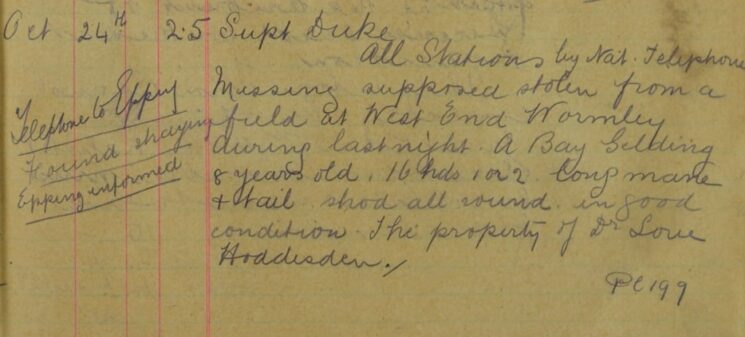 Oct 24th 2.5 Supt Duke
All Stations by Nat. Telephone
Missing supposed stolen from a
field at West End Wormley
during last night. A Bay Gelding
8 years old. 16 hds 1 or 2. long mane
& tail. shod all round. in good
condition. The property of Dr
Hoddesden.
PC 199
Telephone to Epping
Found straying
Epping informed